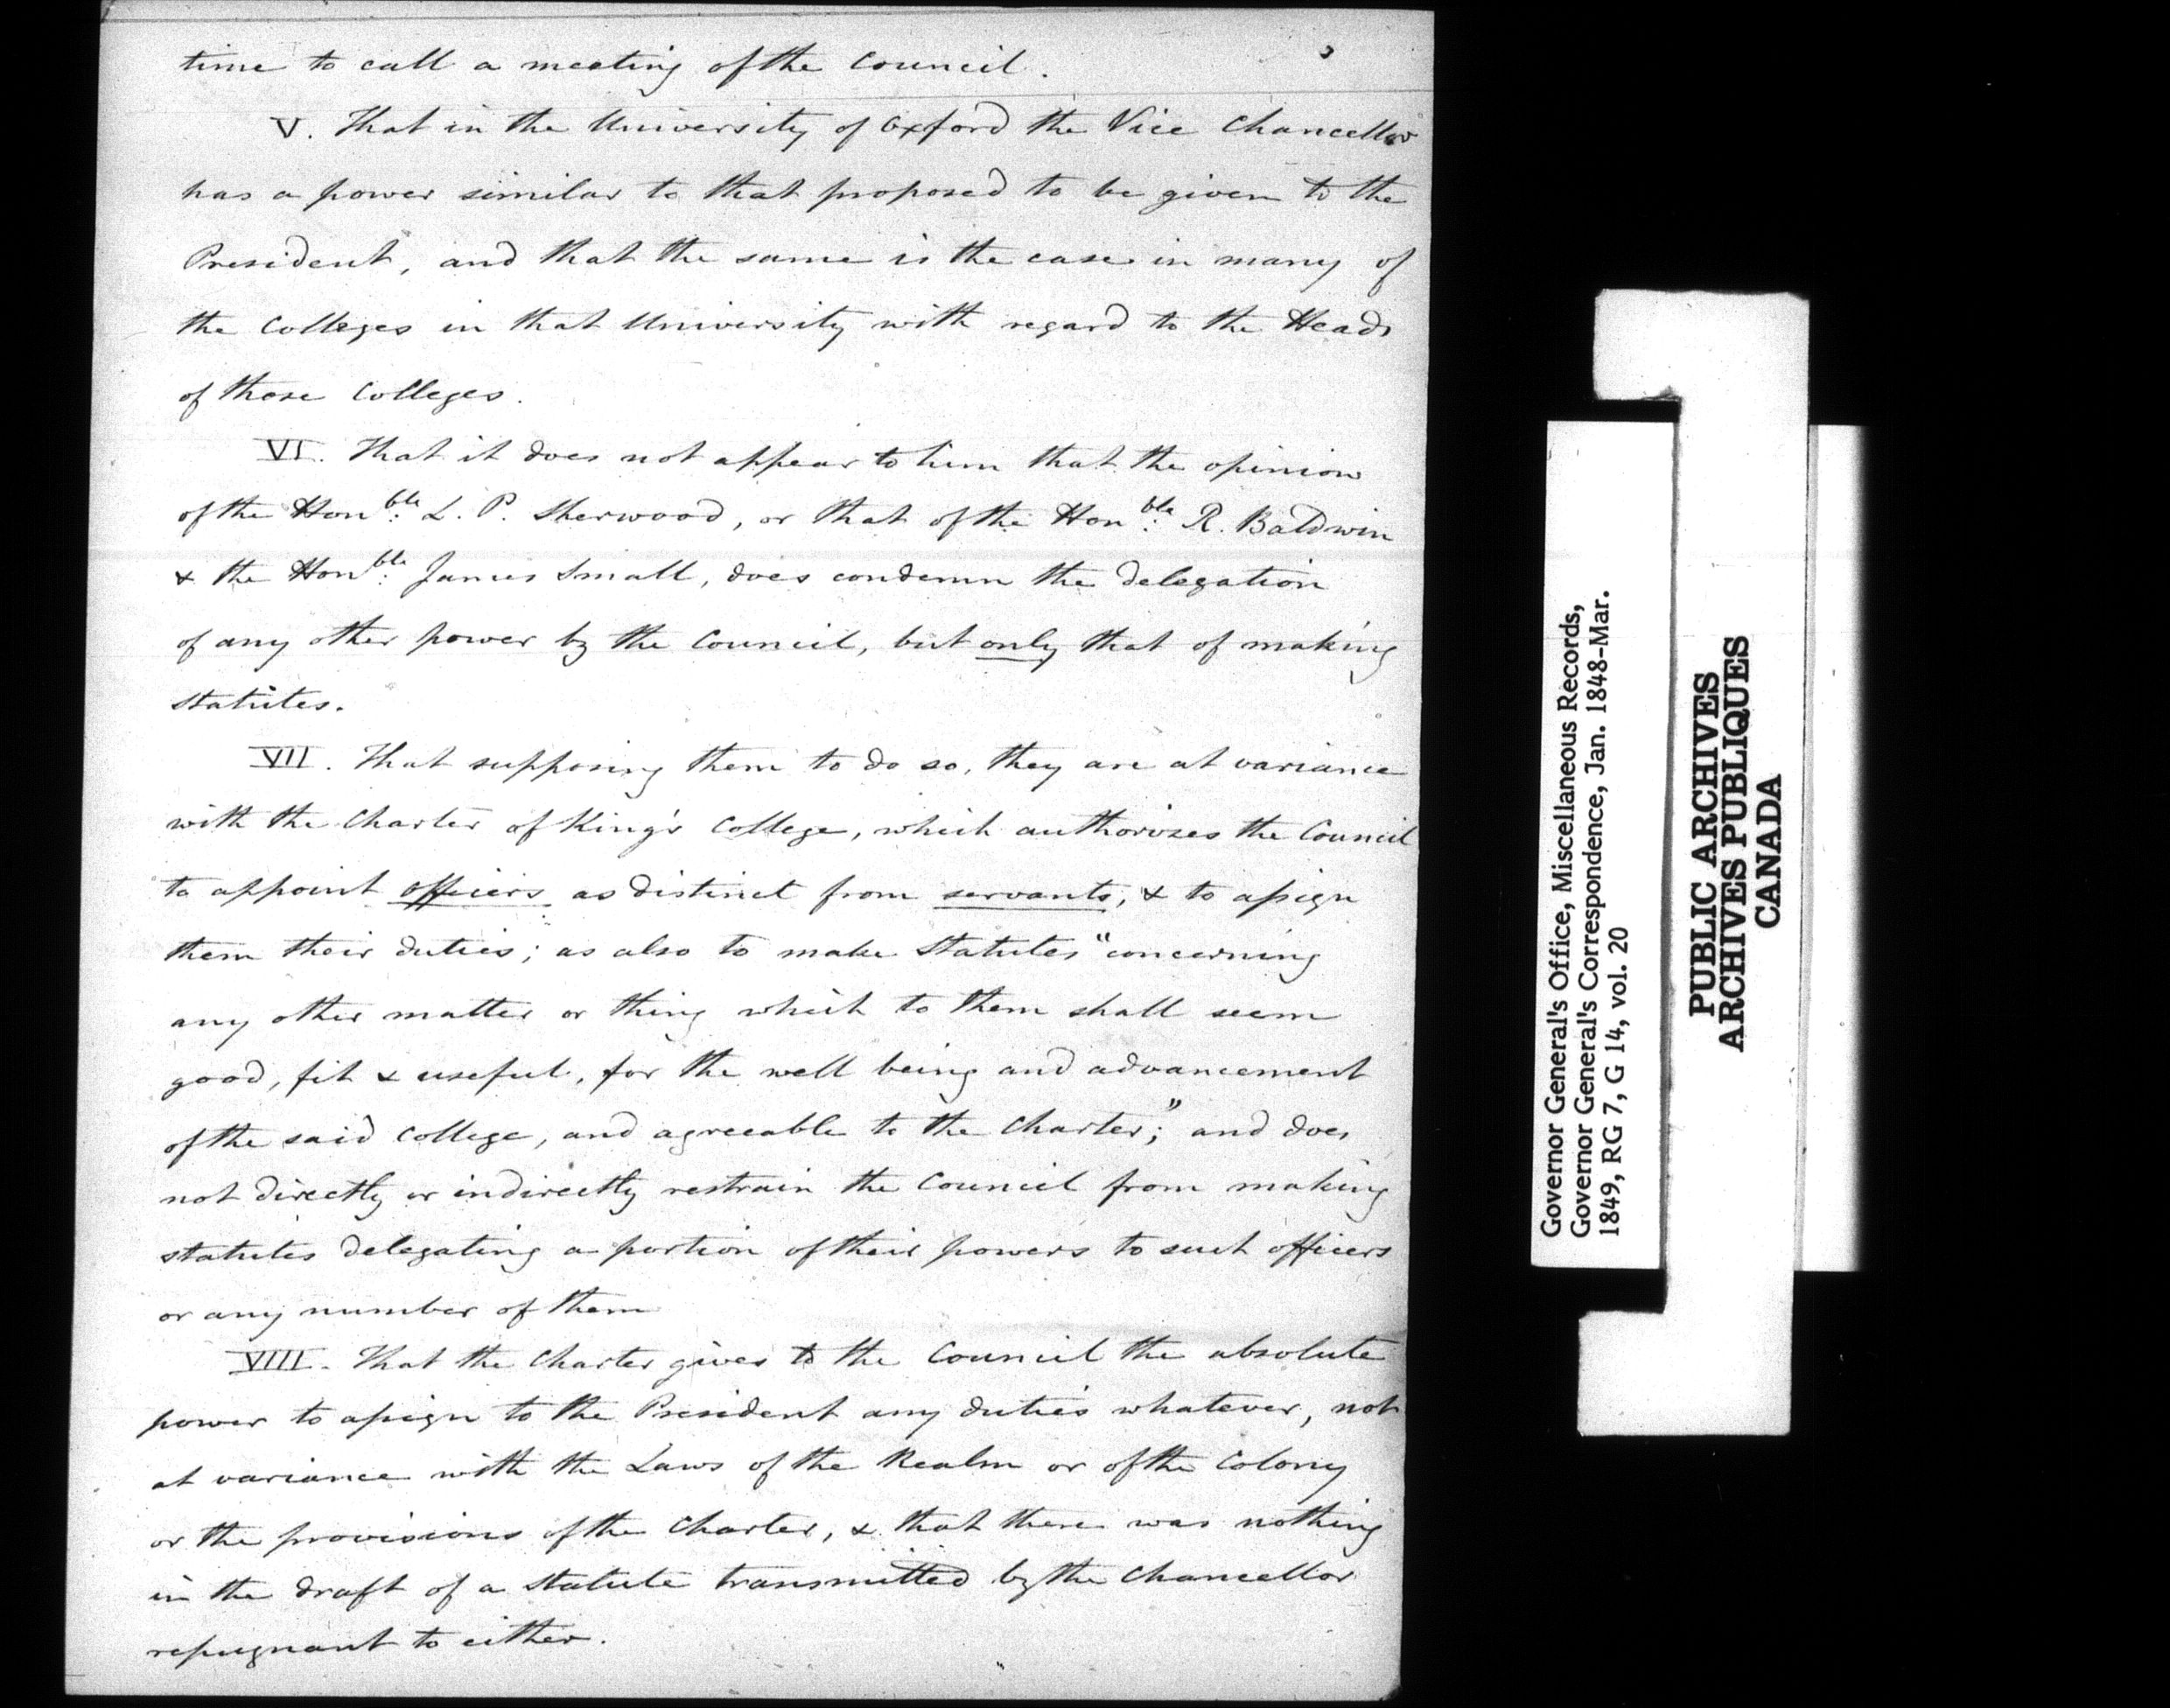 time to call a meeting of the Council.
V. That in the University of Oxford the Vice Chancellor
has a power similar to that proposed to be given to the
President, and that the same is the case in many of
the Colleges in that University with regard to the Heads
of those Colleges.
VI. That it does not appear to him that the opinion
of the Honble. L. P. Sherwood, or that of the Honble. R. Baldwin
& the Honble. James Small, does condemn the delegation
of any other power by the Council, but only that of making
statutes.
VII. That supposing them to do so, they are at variance
with the Charter of King's College, which authorizes the Council
to appoint officers as distinct from servants, & to assign
them their duties; as also to make Statutes "concerning
any other matter or thing which to them shall seem
good, fit & useful, for the well being and advancement
of the said College, and agreeable to the Charter;" and does
not directly or indirectly restrain the Council from making
statutes delegating a portion of their powers to such officers
or any number of them
VIII. That the Charter gives to the Council the absolute
power to assign to the President any duties whatever, not
at variance with the Laws of the Realm or of the Colony
or the provisions of the Charter, & that there was nothing
in the draft of a statute transmitted by the Chancellor
repugnant to either.
Governor General's Office, Miscellaneous Records,
Governor General's Correspondence, Jan. 1848-Mar.
1849, RG 7, G 14, vol. 20
PUBLIC ARCHIVES
ARCHIVES PUBLIQUES
CANADA